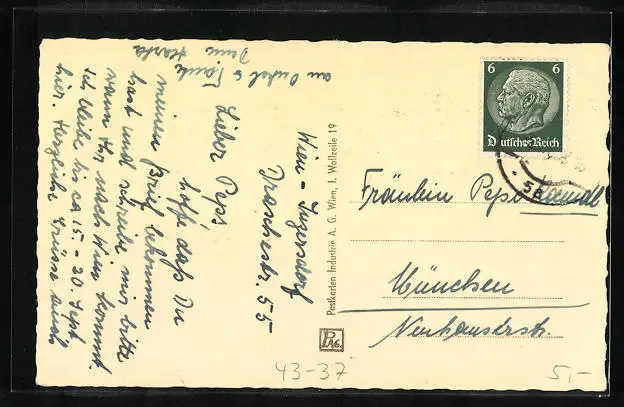 Wien - Inzersdorf
Draschestr. 55
Lieber Peps
hoffe daß Du
meinen Brief bekommen
hast und schreibe mir bitte
wann Ihr nach Wien kommt.
Ich bleibe bis ca 15. - 20. Sept
hier. Herzliche Grüsse auch
an Onkel & Tante
Dein Herta
Postkarten Industrie A. G. Wien, I. Wollzeile 19
PAG.
6 6
Deutsches Reich
Fräulein Pepi
München
Neuhauserstr.
43-37
5,-